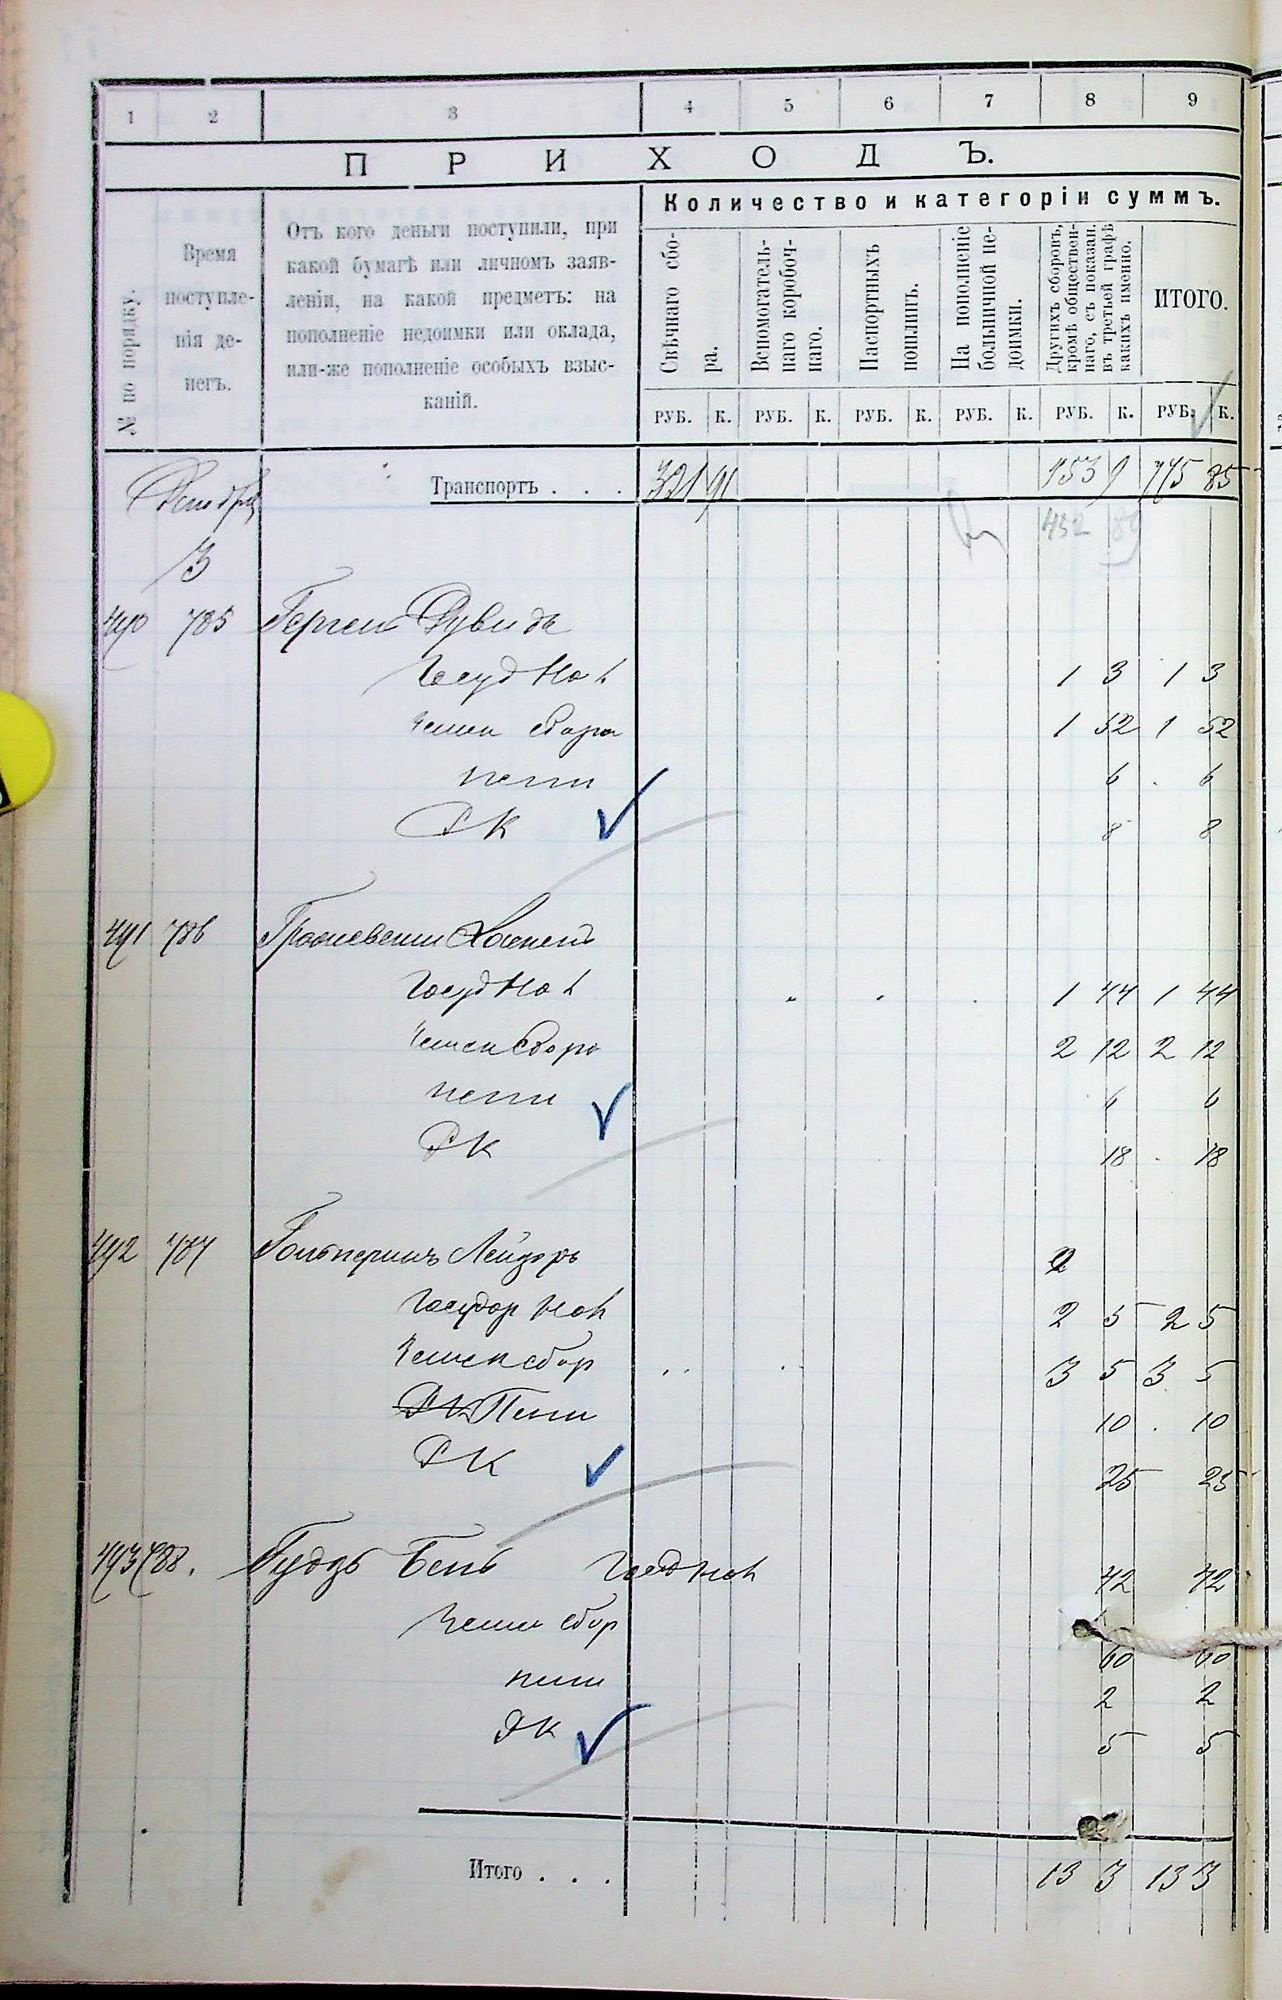 1 2 3 4 5 6 7 8 9
ПРИХОДЪ.
№ по порядку.
Время
поступле-
нія де-
негъ.
Отъ кого деньги поступили, при
какой бумагѣ или личномъ заяв-
леніи, на какой предметъ: на
пополненіе недоимки или оклада,
или-же пополненіе особыхъ взыс-
каній.
Количество и категоріи суммъ.
Свѣчнаго сбо-
ра.
Вспомогатель-
наго коробоч-
наго.
Паспортныхъ
пошлинъ.
На пополненіе
больничной не-
доимки.
Другихъ сборовъ,
кромѣ обществен-
наго, съ показан.
въ третьей графѣ
какихъ именно.
ИТОГО.
РУБ. К. РУБ. К. РУБ. К. РУБ. К. РУБ. К. РУБ. К.
Декабря Транспортъ . . . 321 91
432 89
3
490 785 Герцен Дувидъ
Госуд нал 1 3 1 3
Земск сбора 1 52 1 52
пени 6 6
ДК 8 8
491 786
Госуд нал 1 44 1 44
Земск сбора 2 12 2 12
пени 6 6
ДК 18 18
492 787 Гольперинъ Лейзеръ 2
Государ нал 2 5 2 5
Земск сбор 3 5 3 5
ДК Пени 10 10
ДК 25 25
493 788. Гудзь Бень Госуд нал 42 42
Земск сбор 60 60
пени 2 2
ДК 5 5
Итого . . . 13 3 13 3